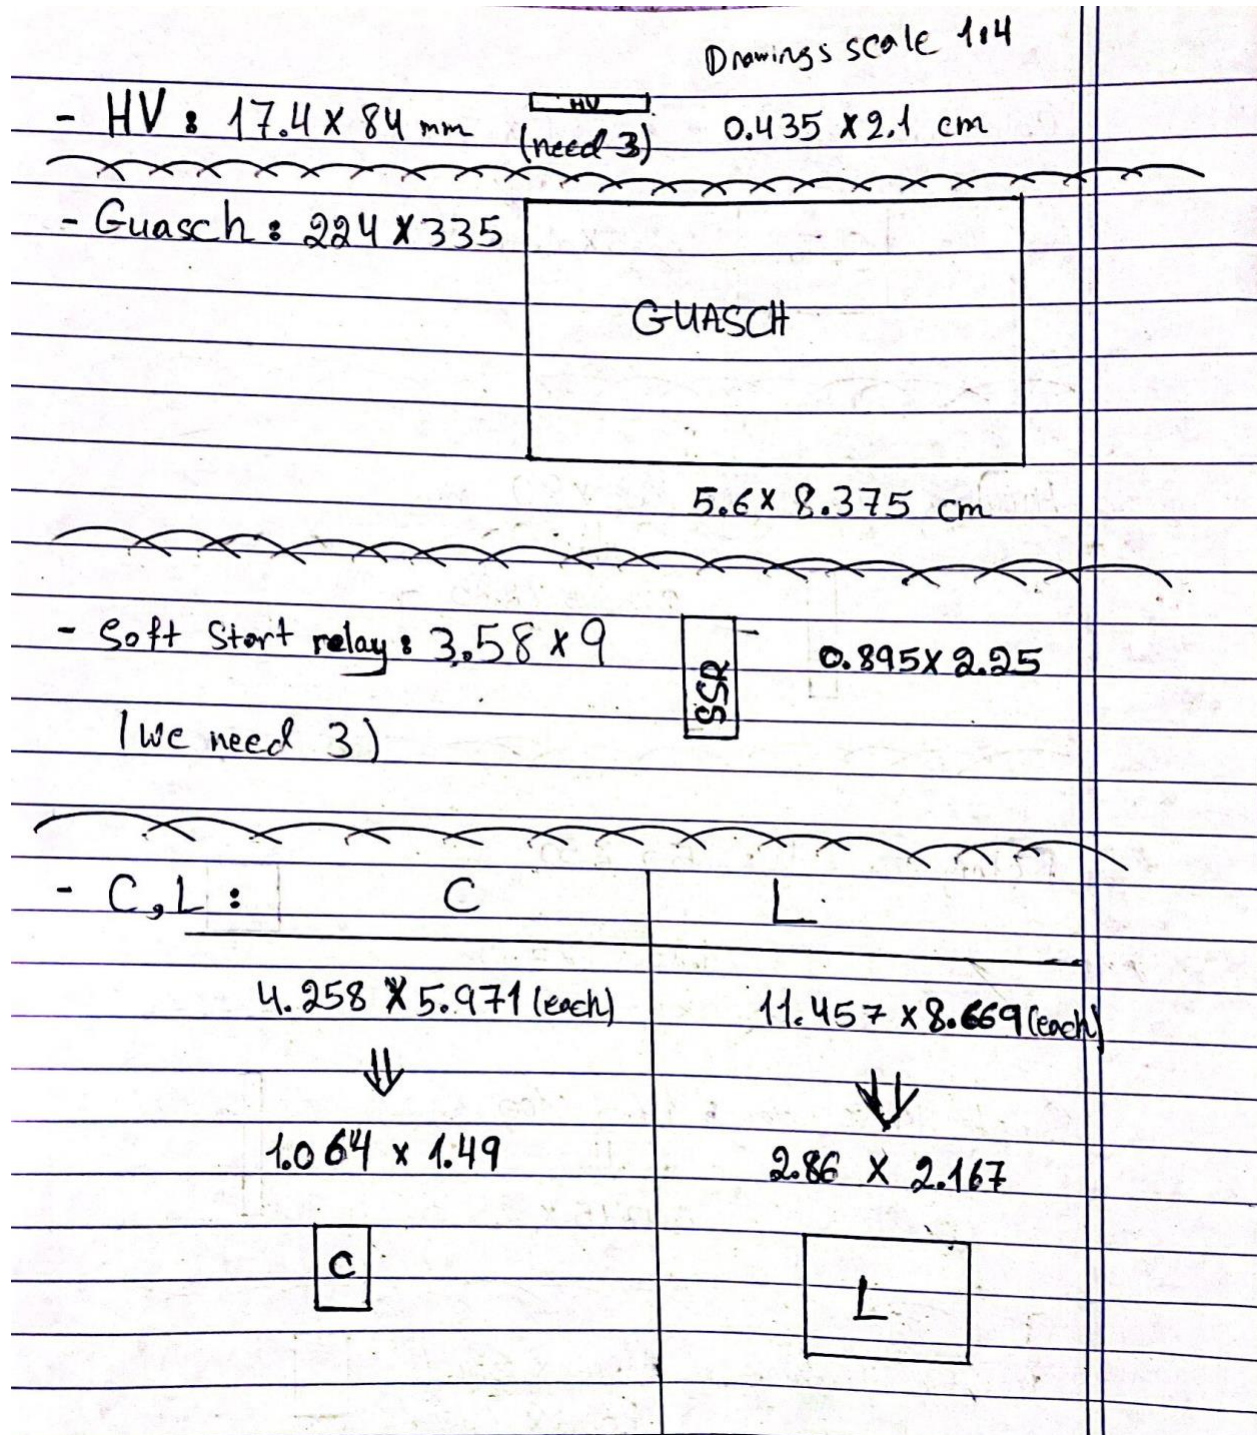 Drawings scale 1:4
- HV : 17.4 x 84 mm
HV
(need 3)
0.435 x 2.1 cm
- Guasch : 224 x 335
GUASCH
5.6 x 8.375 cm
- Soft Start relay : 3.58 x 9
(we need 3)
SSR
0.895 x 2.25
- C, L :
C
L
4.258 x 5.971 (each)
11.457 x 8.669 (each)
⇓
⇓
1.064 x 1.49
2.86 x 2.167
C
L